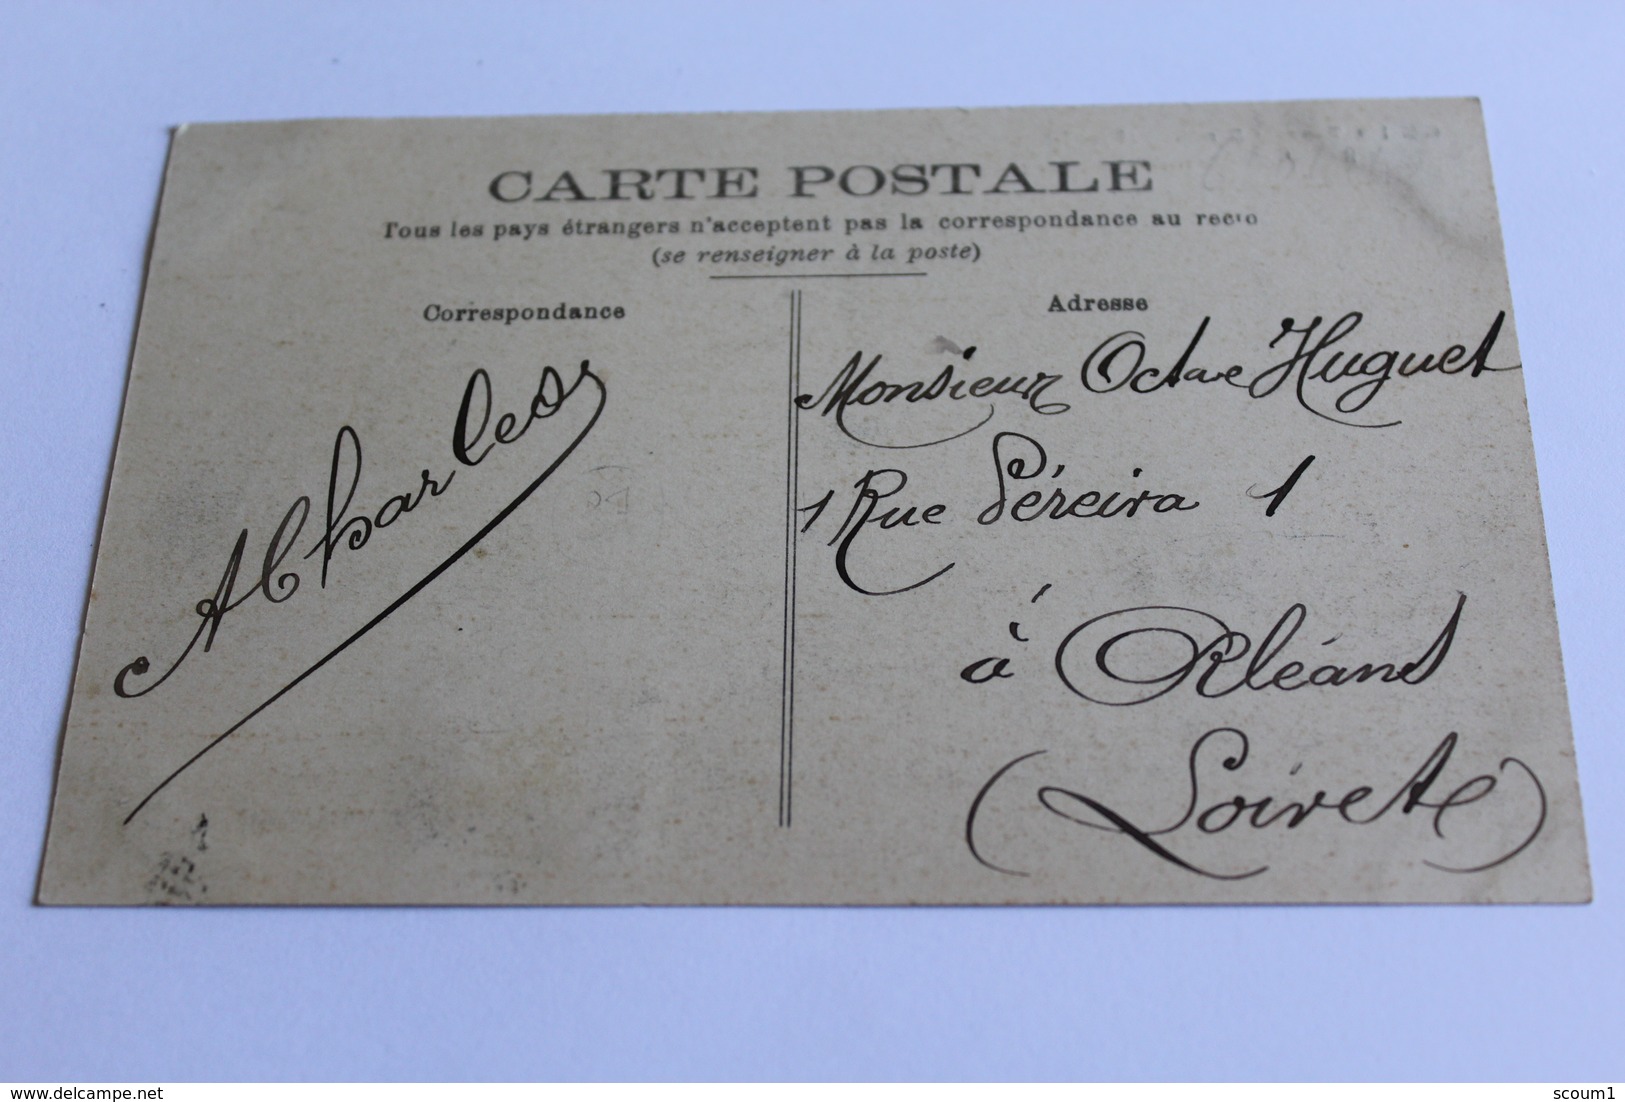 CARTE POSTALE
Tous les pays étrangers n'acceptent pas la correspondance au recto
(se renseigner à la poste)
Correspondance
Adresse
A Charles
Monsieur Octave Huguet
1 Rue Péreira 1
à Orléans
(Loiret)
delcampe.net
scoum1